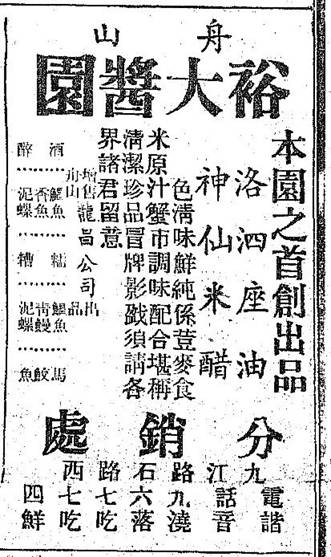 舟山
裕大醬園
本園之首創出品
洛泗座油
神仙米醋
色清味鮮純係荳麥食
米原汁蟹市調味配合堪稱
清潔珍品冒牌影戤須請各
界諸君留意
增售舟山龍昌公司出品
酒醉……
鰳魚 香魚 泥螺……
糯糟……
鰳魚 青鰻 泥螺……
馬鮫魚
分銷處
九江路石路西
電話九六七七四
諧音澆落吃吃鮮